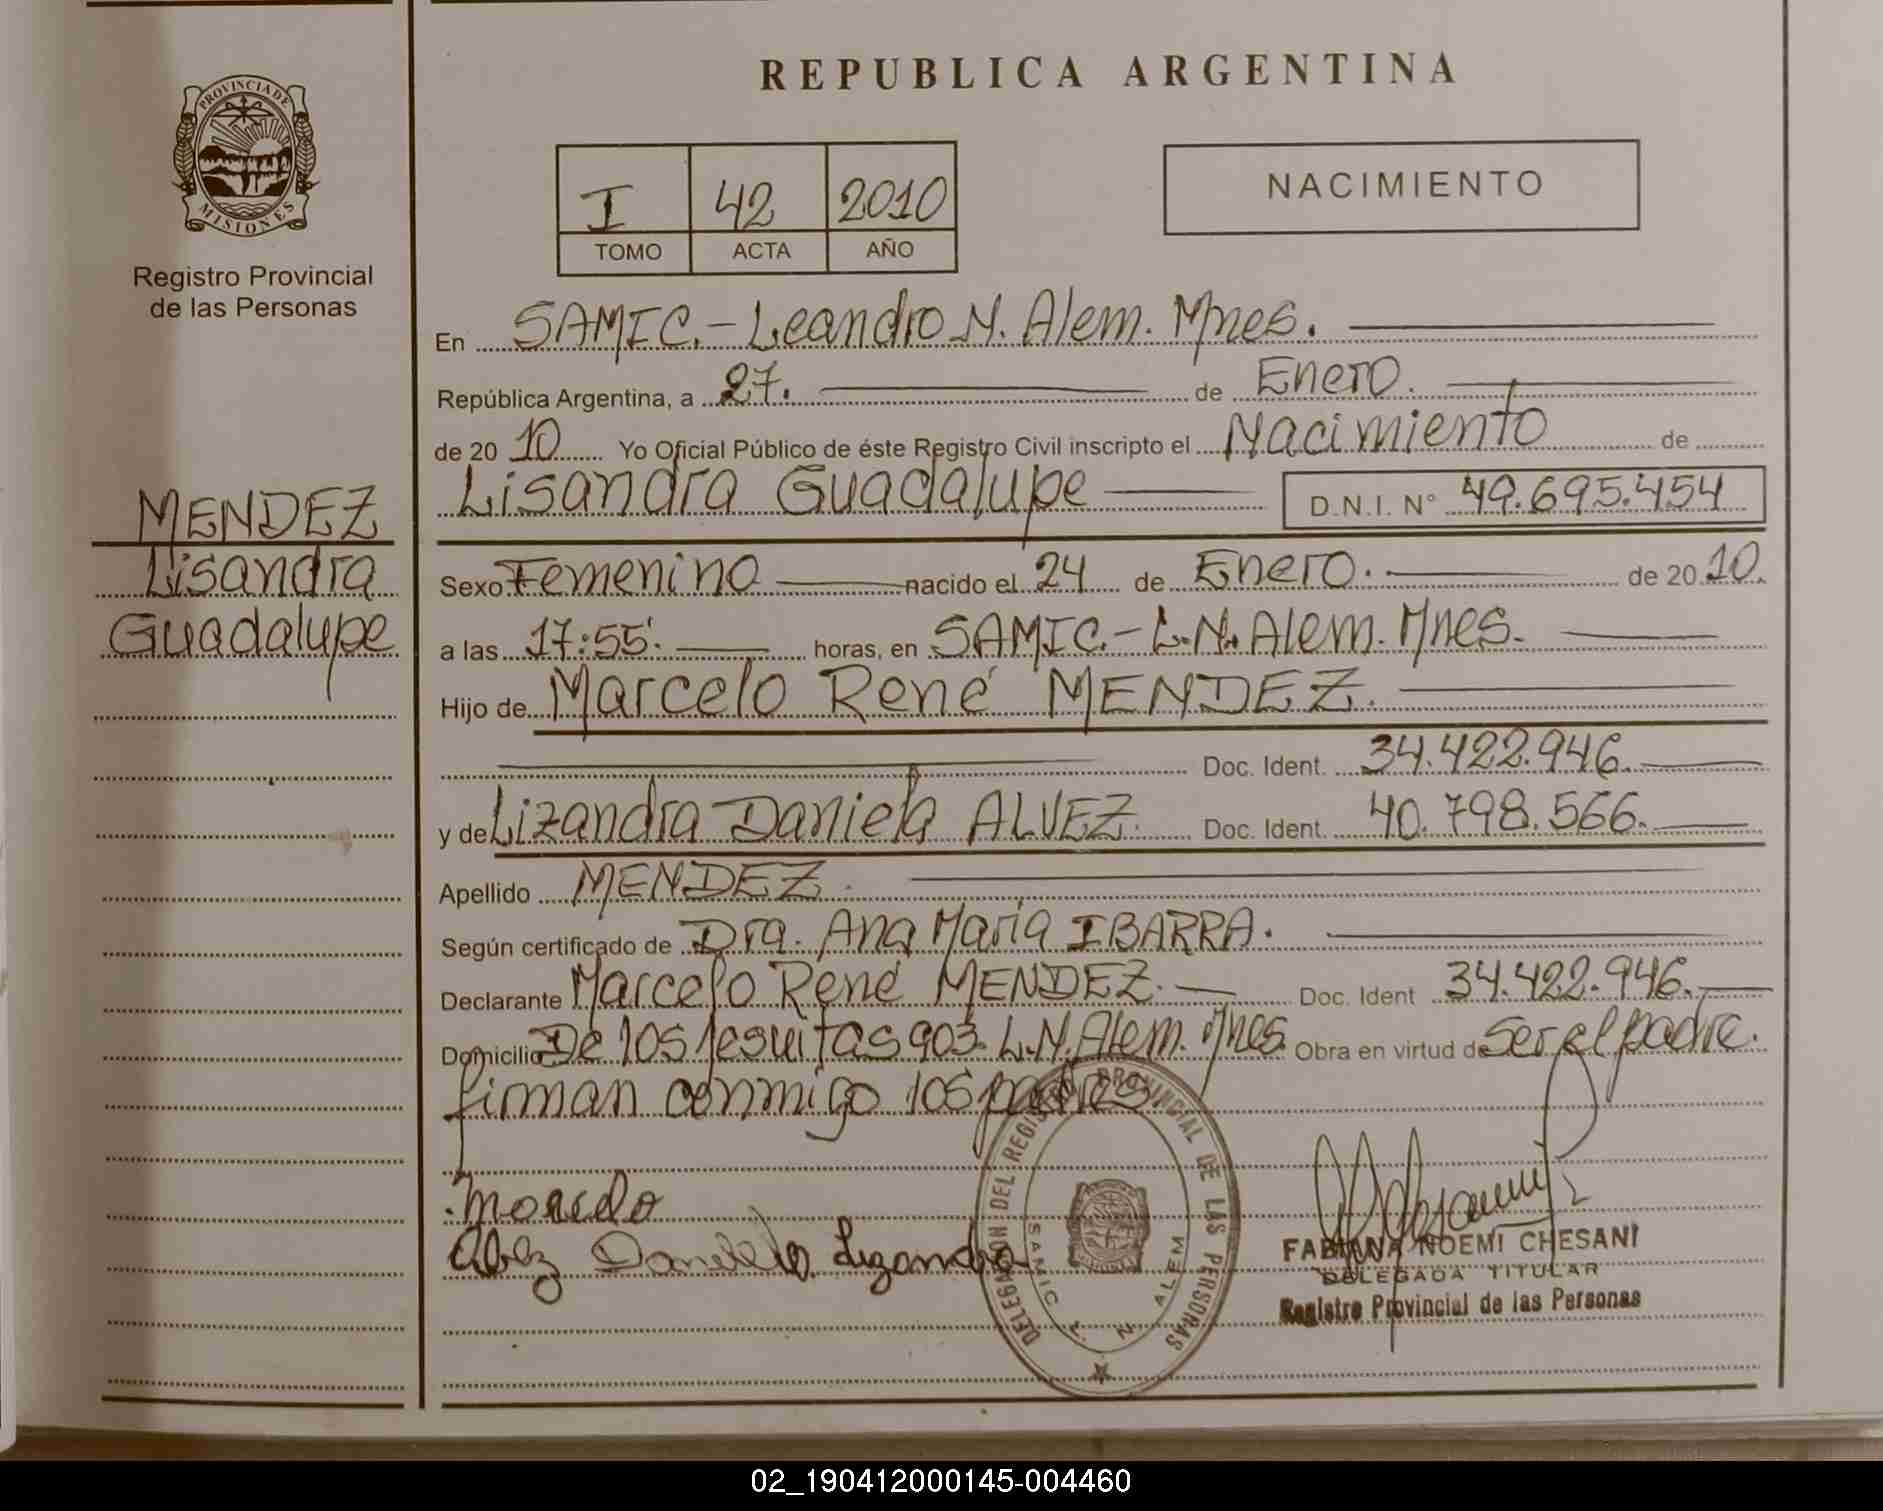 PROVINCIA DE
MISIONES
Registro Provincial
de las Personas
MENDEZ
Lisandra
Guadalupe
REPUBLICA ARGENTINA
I 42 2010
TOMO ACTA AÑO
NACIMIENTO
En SAMIC.- Leandro N. Alem. Mnes.
República Argentina, a 27. de Enero.
de 20 10 Yo Oficial Público de éste Registro Civil inscripto el Nacimiento de
Lisandra Guadalupe D.N.I. N° 49.695.454
Sexo Femenino nacido el 24 de Enero. de 20 10.
a las 17:55'. horas, en SAMIC.- L.N. Alem. Mnes.
Hijo de Marcelo René MENDEZ.
Doc. Ident. 34.422.946.
y de Lizandra Daniela ALVEZ. Doc. Ident. 40.798.566.
Apellido MENDEZ.
Según certificado de Dra. Ana María IBARRA.
Declarante Marcelo René MENDEZ. Doc. Ident 34.422.946.
Domicilio De los Jesuitas 903. L.N. Alem. Mnes. Obra en virtud de Ser el padre.
firman conmigo los padres
DELEGACION DEL REGISTRO PROVINCIAL DE LAS PERSONAS
SAMIC L. N. ALEM
Daniela Lizandra
FABIANA NOEMI CHESANI
DELEGADA TITULAR
Registro Provincial de las Personas
02_190412000145-004460